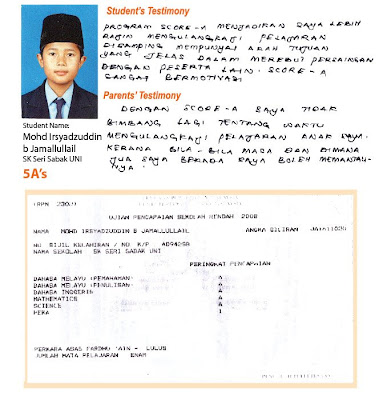 Student's Testimony
PROGRAM SCORE-A MENJADIKAN SAYA LEBIH
RAJIN MENGULANGKAJI PELAJARAN
DISAMPING MEMPUNYAI ARAH TUJUAN
YANG JELAS DALAM MEREBUT PERSAINGAN
DENGAN PESERTA LAIN. SCORE-A
SANGAT BERMOTIVASI
Parents' Testimony
DENGAN SCORE-A SAYA TIDAK
BIMBANG LAGI TENTANG WAKTU
MENGULANGKAJI PELAJARAN ANAK SAYA.
KERANA BILA-BILA MASA DAN DIMANA
JUA SAYA BERADA SAYA BOLEH MEMANTAU-
NYA.
Student Name:
Mohd Irsyadzuddin
b Jamallullail
SK Seri Sabak UNI
5A's
UJIAN PENCAPAIAN SEKOLAH RENDAH 2008
NAMA MOHD IRSYADZUDDIN B JAMALLULLAIL
ANGKA GILIRAN
NO SIJIL KELAHIRAN / NO K/P
NAMA SEKOLAH SK SERI SABAK UNI
PERINGKAT PENCAPAIAN
BAHASA MELAYU (PEMAHAMAN) A
BAHASA MELAYU (PENULISAN) A
BAHASA INGGERIS A
MATHEMATICS A
SCIENCE A
PERKARA ASAS FARDHU 'AIN - LULUS
JUMLAH MATA PELAJARAN ENAM